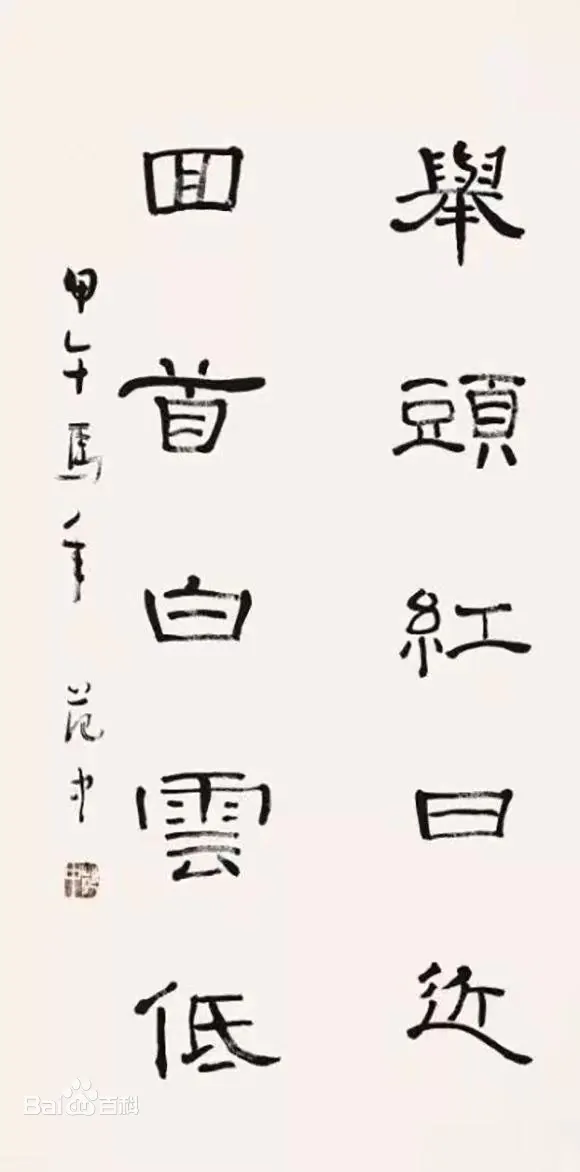 舉頭紅日近
回首白雲低
甲午馬年 范中
Bai百科